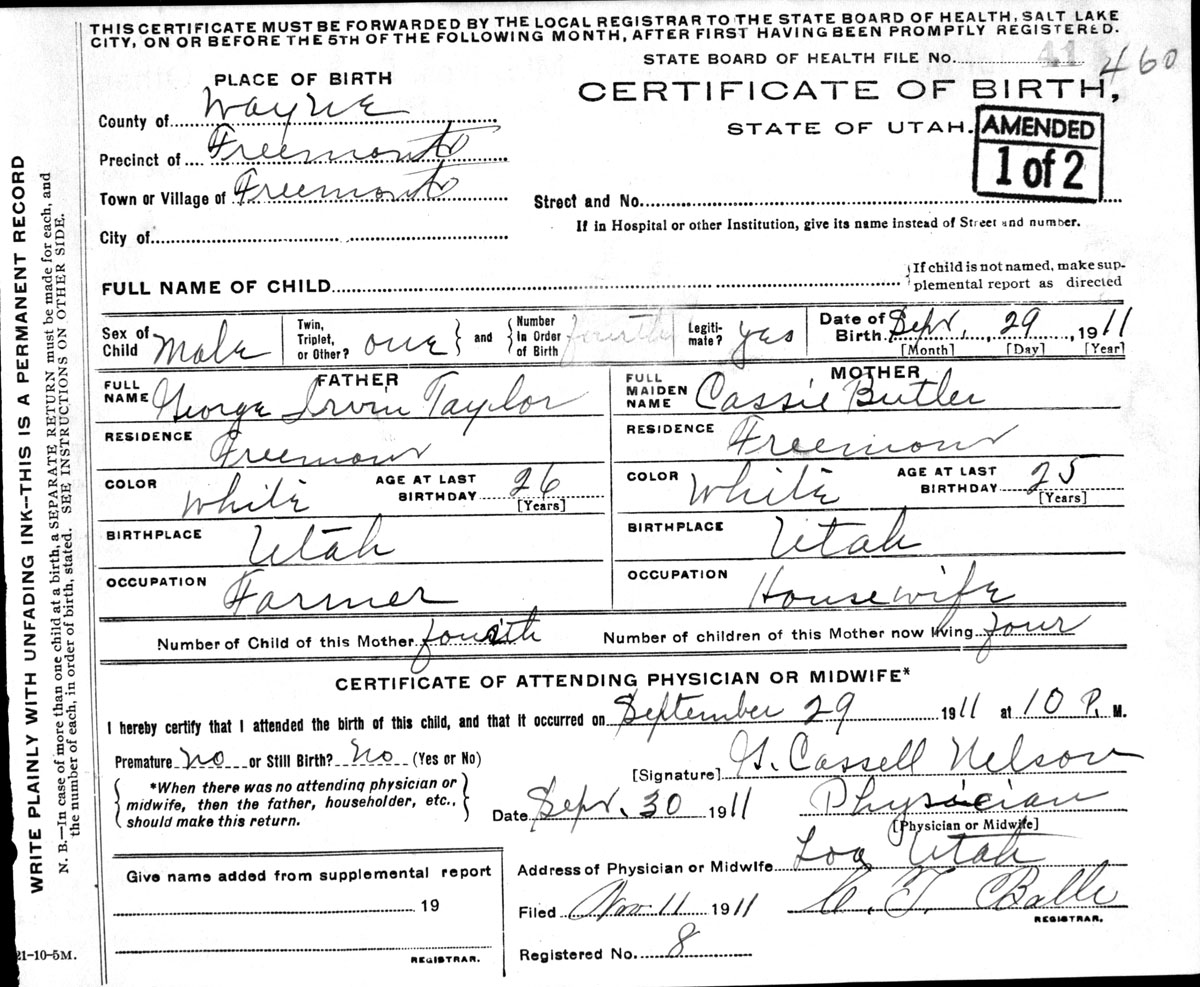 THIS CERTIFICATE MUST BE FORWARDED BY THE LOCAL REGISTRAR TO THE STATE BOARD OF HEALTH, SALT LAKE
CITY, ON OR BEFORE THE 5TH OF THE FOLLOWING MONTH, AFTER FIRST HAVING BEEN PROMPTLY REGISTERED.
STATE BOARD OF HEALTH FILE No. 41 460
PLACE OF BIRTH
CERTIFICATE OF BIRTH,
STATE OF UTAH.
AMENDED
1 of 2
County of Wayne
Precinct of Freemont
Town or Village of Freemont
Street and No.
If in Hospital or other Institution, give its name instead of Street and number.
City of
FULL NAME OF CHILD
If child is not named, make sup-
plemental report as directed
Sex of Child Male
Twin, Triplet, or Other? one and Number In Order of Birth fourth
Legiti-mate? yes
Date of Birth Sept, 29, 1911
[Month] [Day] [Year]
FATHER
FULL NAME George Irvin Taylor
RESIDENCE Freemont
COLOR White AGE AT LAST BIRTHDAY 26 [Years]
BIRTHPLACE Utah
OCCUPATION Farmer
MOTHER
FULL MAIDEN NAME Cassie Butler
RESIDENCE Freemont
COLOR White AGE AT LAST BIRTHDAY 25 [Years]
BIRTHPLACE Utah
OCCUPATION Housewife
Number of Child of this Mother fourth Number of children of this Mother now living four
CERTIFICATE OF ATTENDING PHYSICIAN OR MIDWIFE*
I hereby certify that I attended the birth of this child, and that it occurred on September 29 1911 at 10 P. M.
Premature No or Still Birth? No (Yes or No)
*When there was no attending physician or
midwife, then the father, householder, etc.,
should make this return.
[Signature] G. Cassell Nelson
Date Sept. 30 1911 Physician
[Physician or Midwife]
Address of Physician or Midwife Loa Utah
Filed Nov 11 1911
REGISTRAR.
Registered No. 8
Give name added from supplemental report
19
REGISTRAR.
21-10-5M.
WRITE PLAINLY WITH UNFADING INK--THIS IS A PERMANENT RECORD
N. B.—In case of more than one child at a birth, a SEPARATE RETURN must be made for each, and
the number of each, in order of birth, stated. SEE INSTRUCTIONS ON OTHER SIDE.